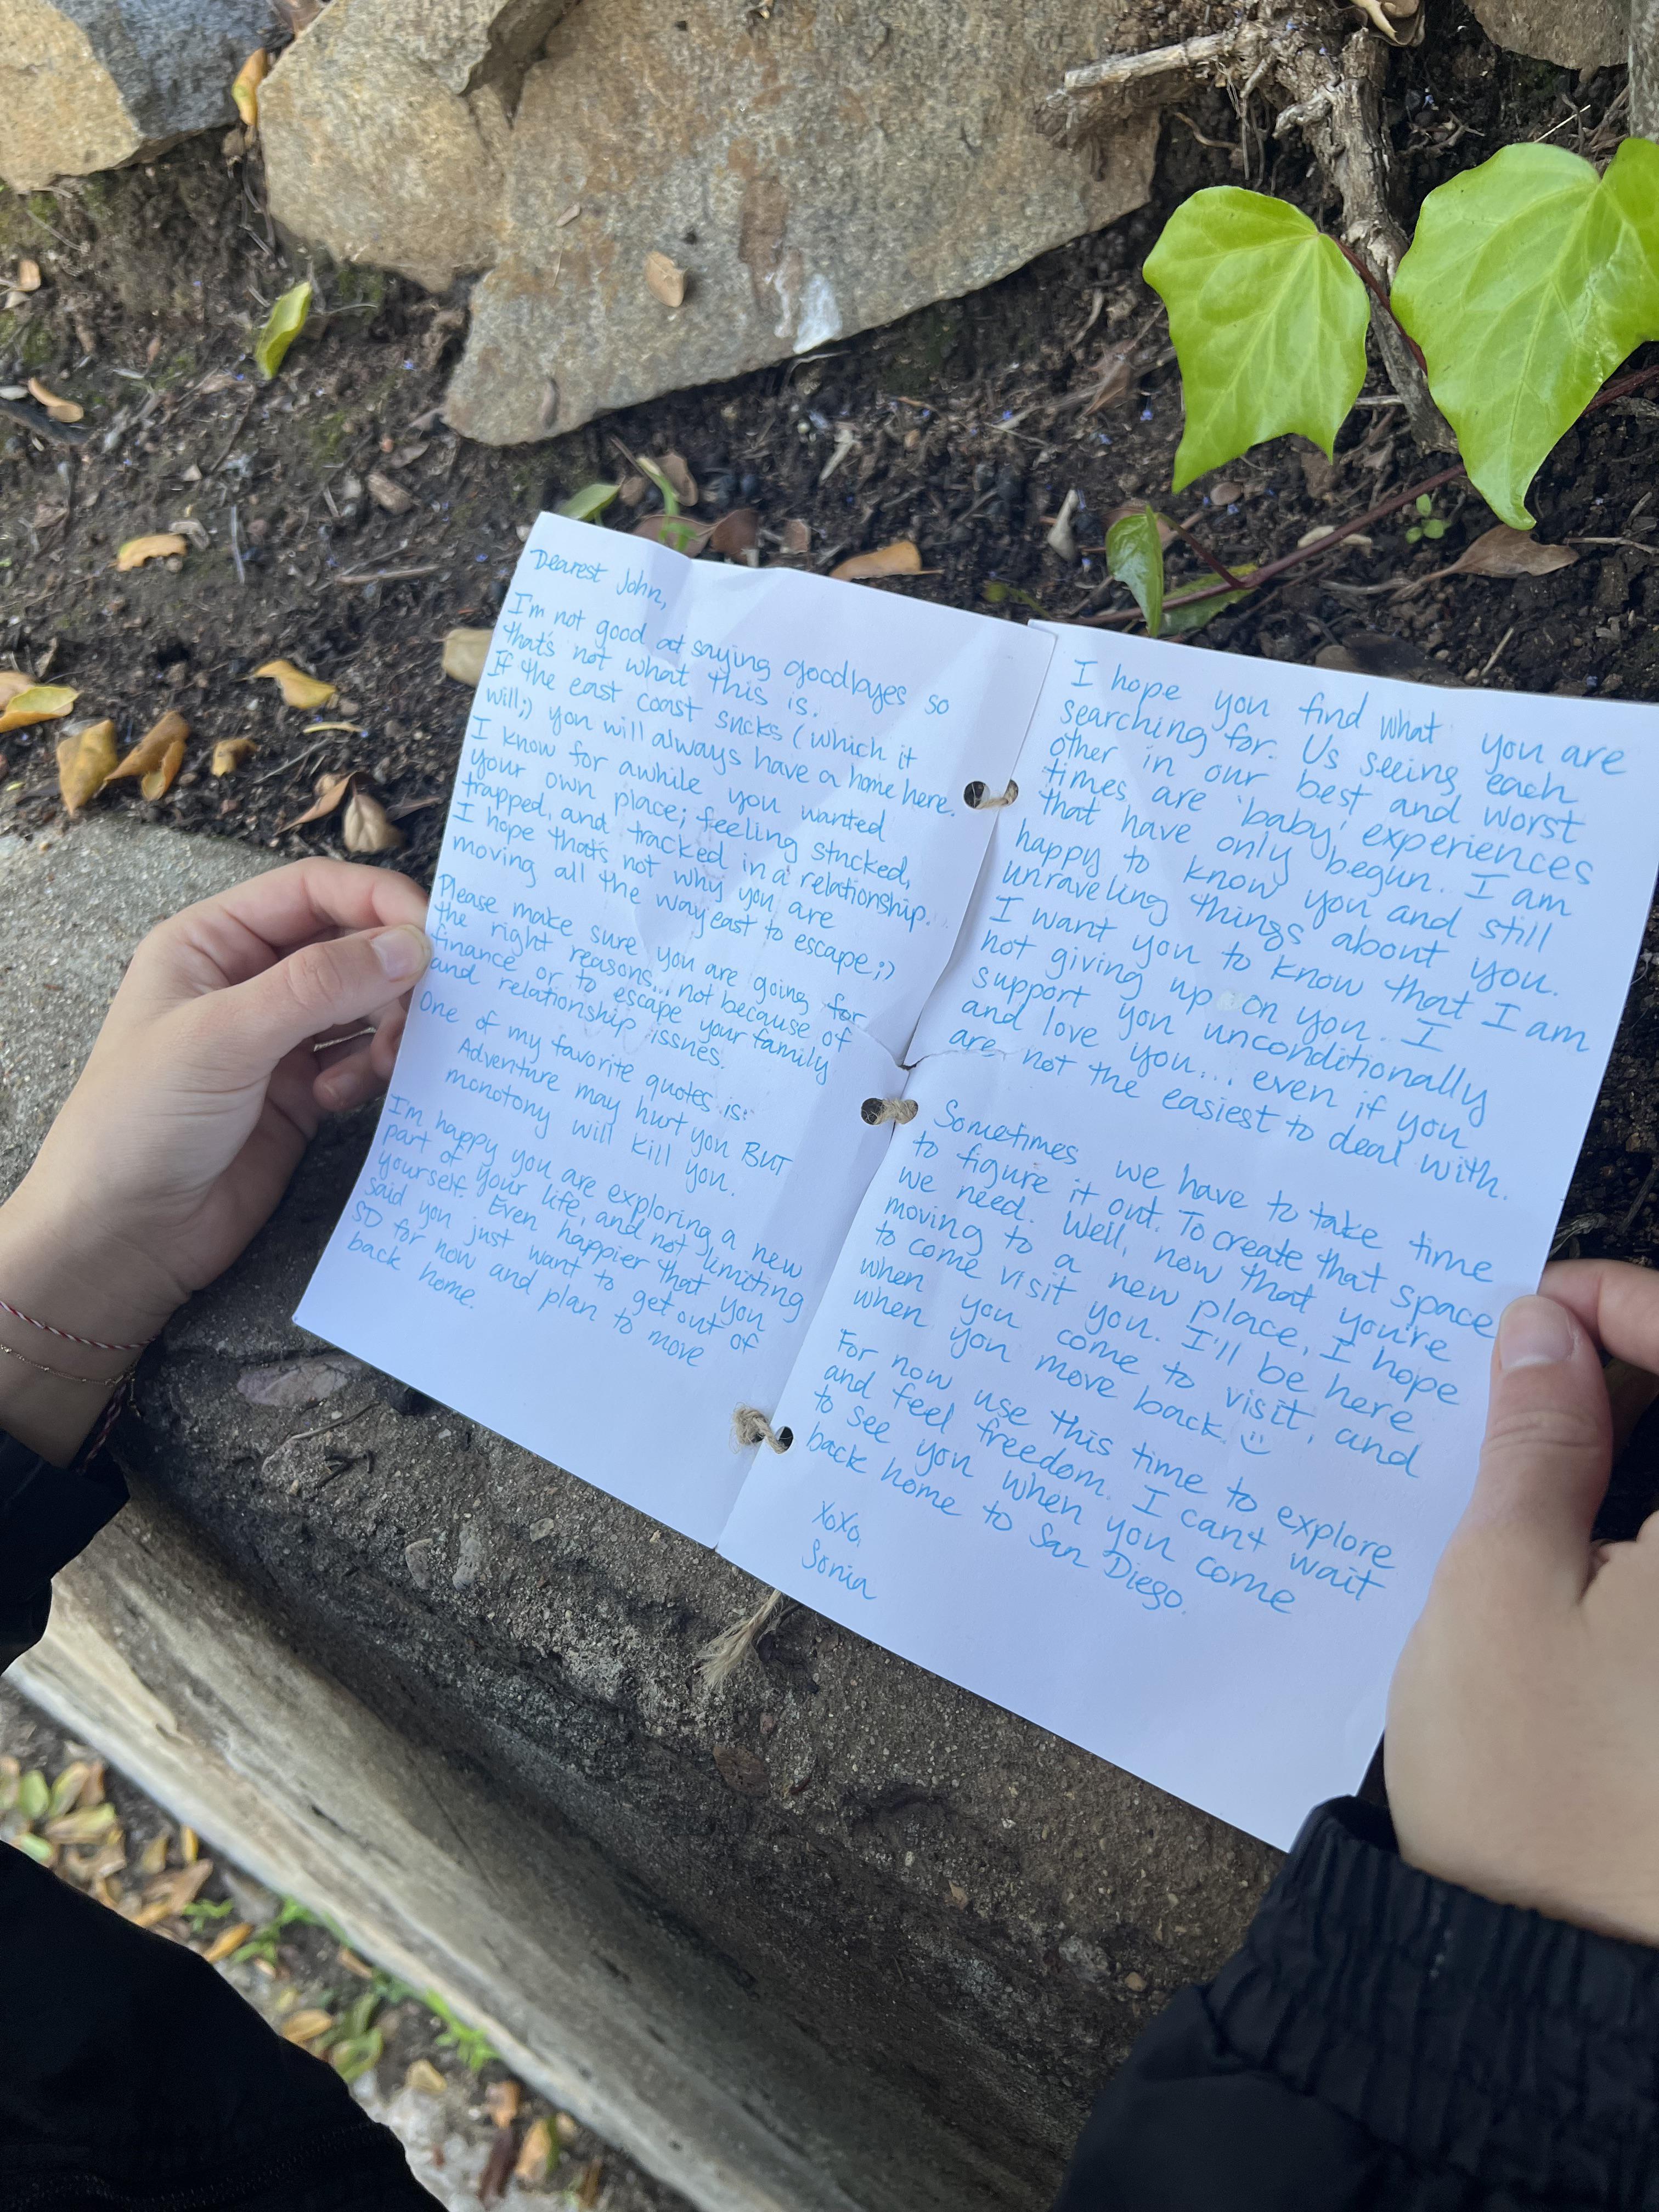 Dearest John,
I'm not good at saying goodbyes so
that's not what this is.
If the east coast sucks (which it
will;) you will always have a home here.
I know for awhile you wanted
your own place; feeling stucked,
trapped, and tracked in a relationship.
I hope that's not why you are
moving all the way east to escape;)
Please make sure you are going for
the right reasons... not because of
finance or to escape your family
and relationship issues.
One of my favorite quotes is:
Adventure may hurt you BUT
monotony will kill you.
I'm happy you are exploring a new
part of your life, and not limiting
yourself. Even happier that you
said you just want to get out of
SD for now and plan to move
back home.
I hope you find what you are
searching for. Us seeing each
other in our best and worst
times are 'baby' experiences
that have only begun. I am
happy to know you and still
unraveling things about you.
I want you to know that I am
not giving up on you. I
support you unconditionally
and love you... even if you
are not the easiest to deal with.
Sometimes we have to take time
to figure it out. To create that space
we need. Well, now that you're
moving to a new place, I hope
to come visit you. I'll be here
when you come to visit, and
when you move back. :)
For now use this time to explore
and feel freedom. I can't wait
to see you when you come
back home to San Diego.
XOXO,
Sonia